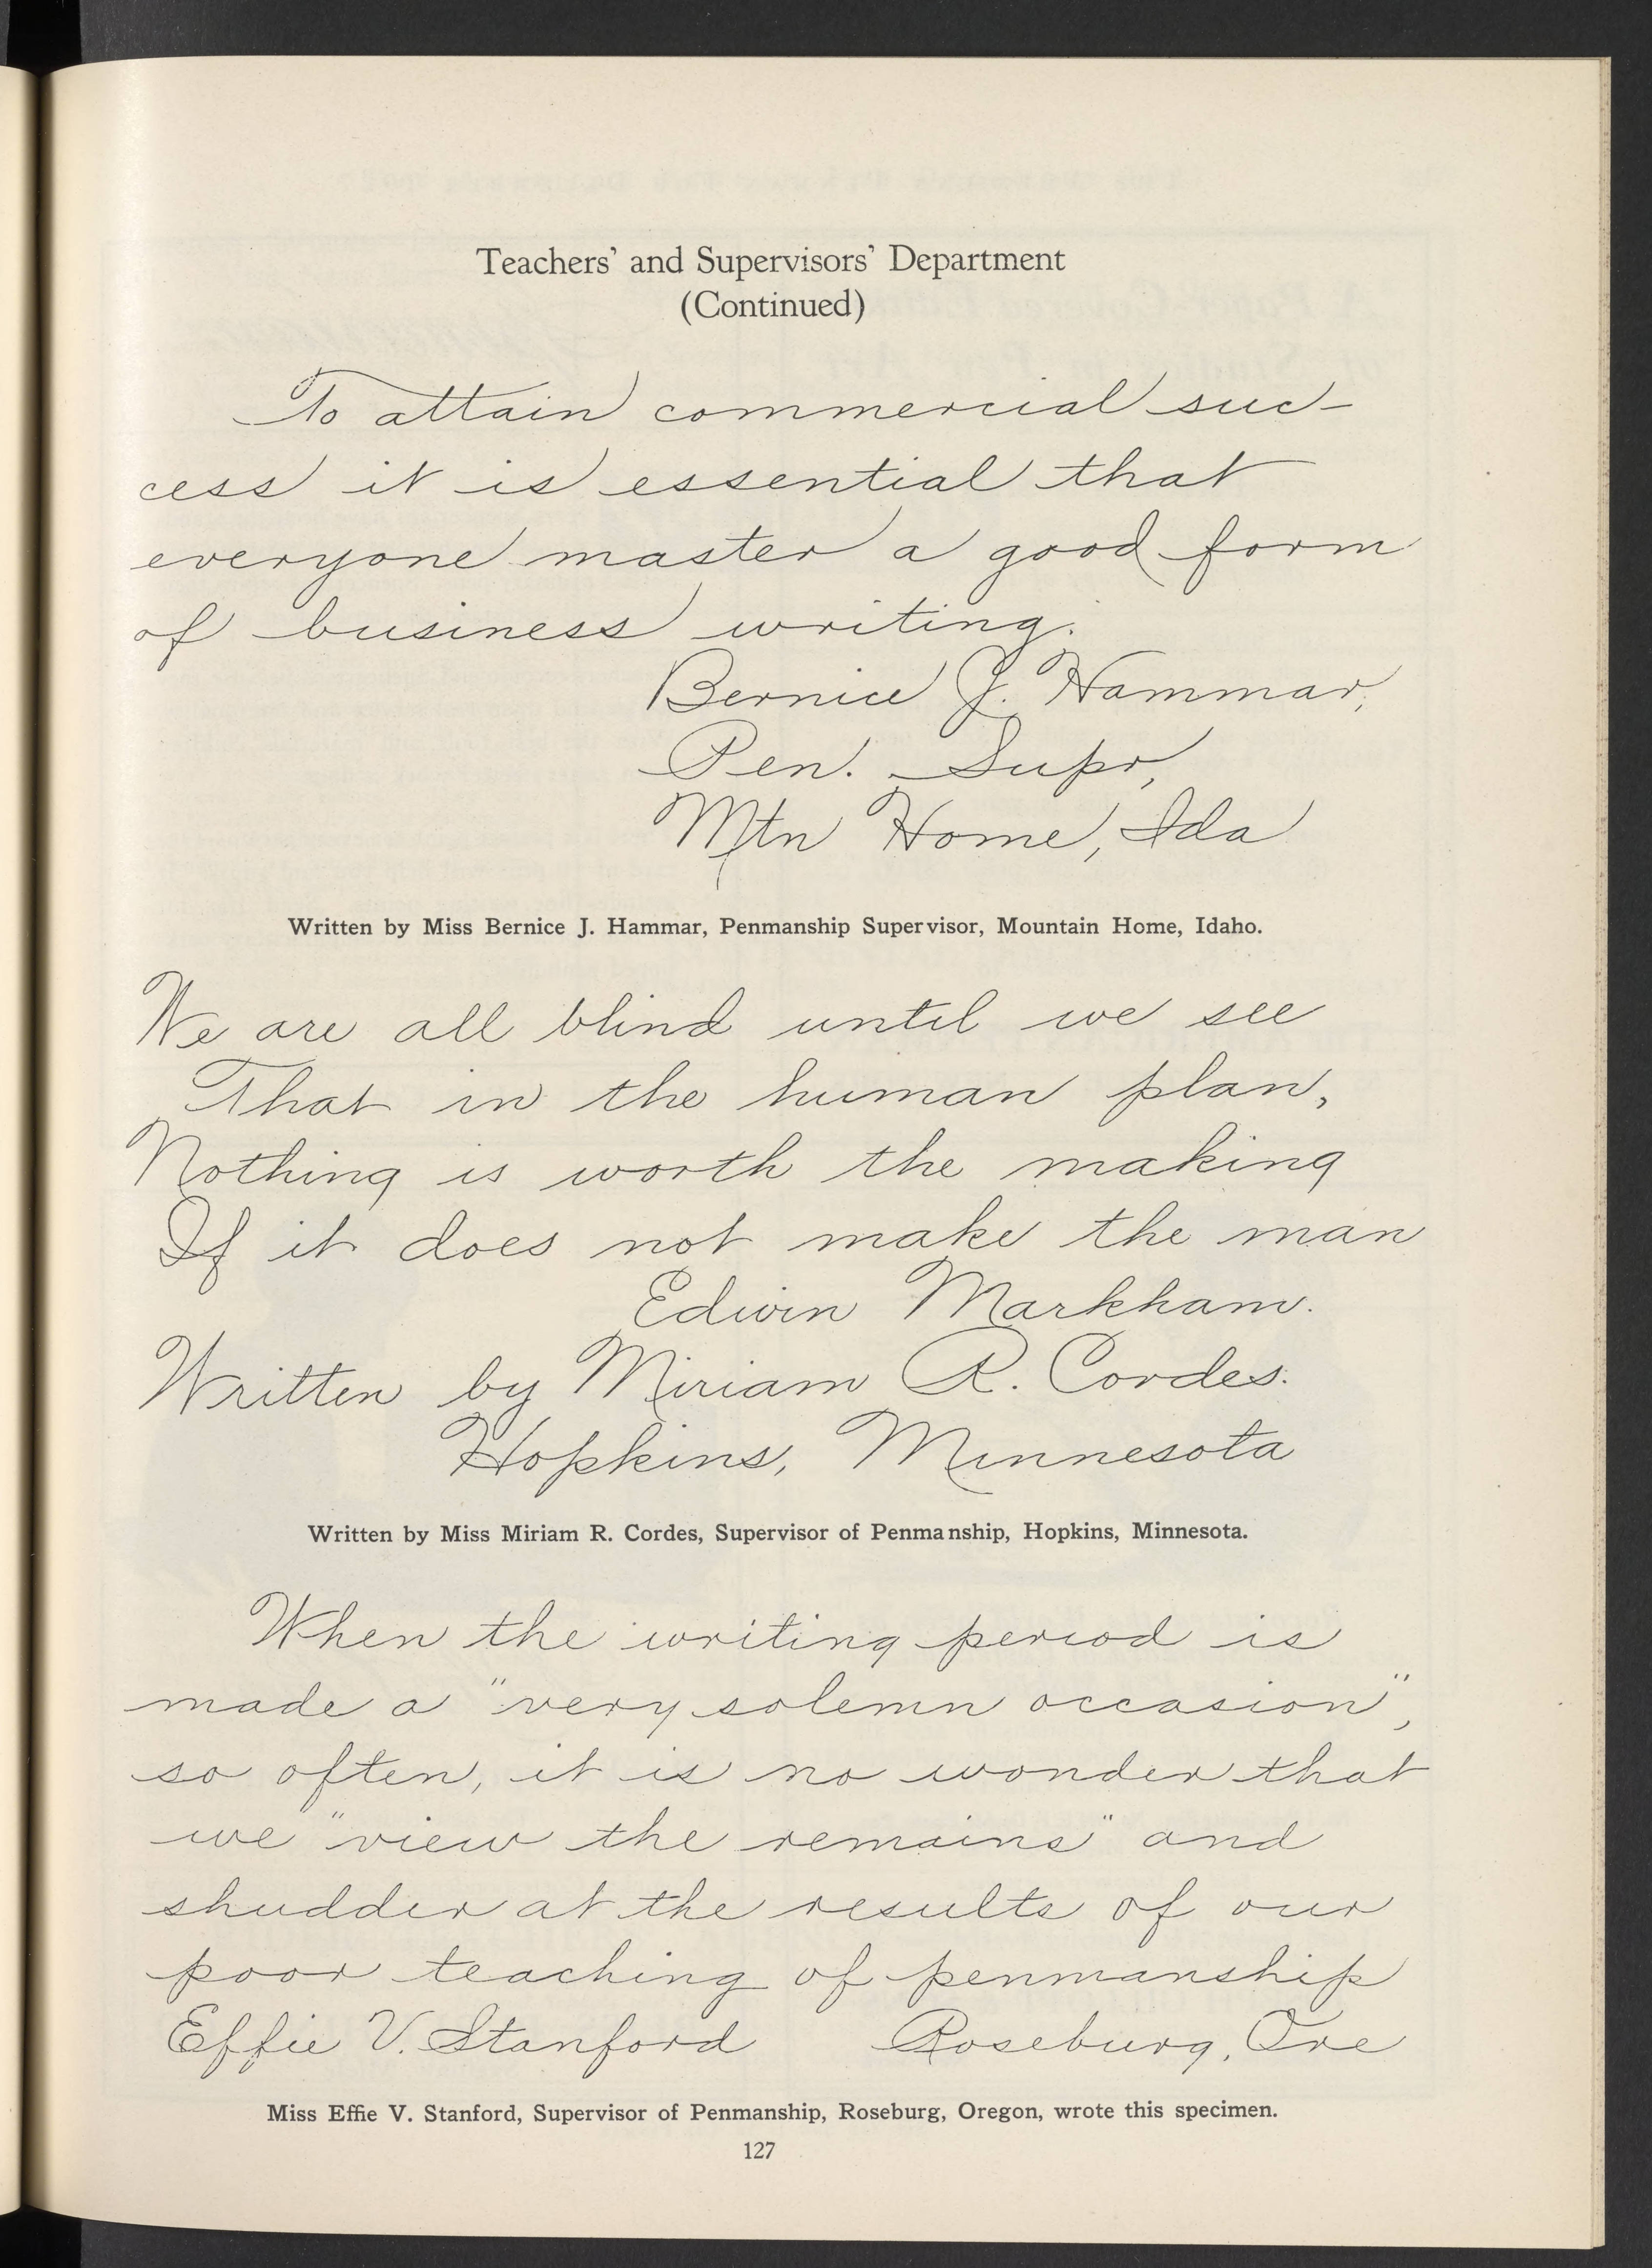 Teachers' and Supervisors' Department
(Continued)
To attain commercial suc-
cess it is essential that
everyone master a good form
of business writing.
Bernice J. Hammar,
Pen. Supr,
Mtn Home, Ida
Written by Miss Bernice J. Hammar, Penmanship Supervisor, Mountain Home, Idaho.
We are all blind until we see
That in the human plan,
Nothing is worth the making
If it does not make the man
Edwin Markham.
Written by Miriam R. Cordes.
Hopkins, Minnesota
Written by Miss Miriam R. Cordes, Supervisor of Penmanship, Hopkins, Minnesota.
When the writing period is
made a "very solemn occasion",
so often, it is no wonder that
we "view the remains" and
shudder at the results of our
poor teaching of penmanship
Effie V. Stanford Roseburg, Ore
Miss Effie V. Stanford, Supervisor of Penmanship, Roseburg, Oregon, wrote this specimen.
127